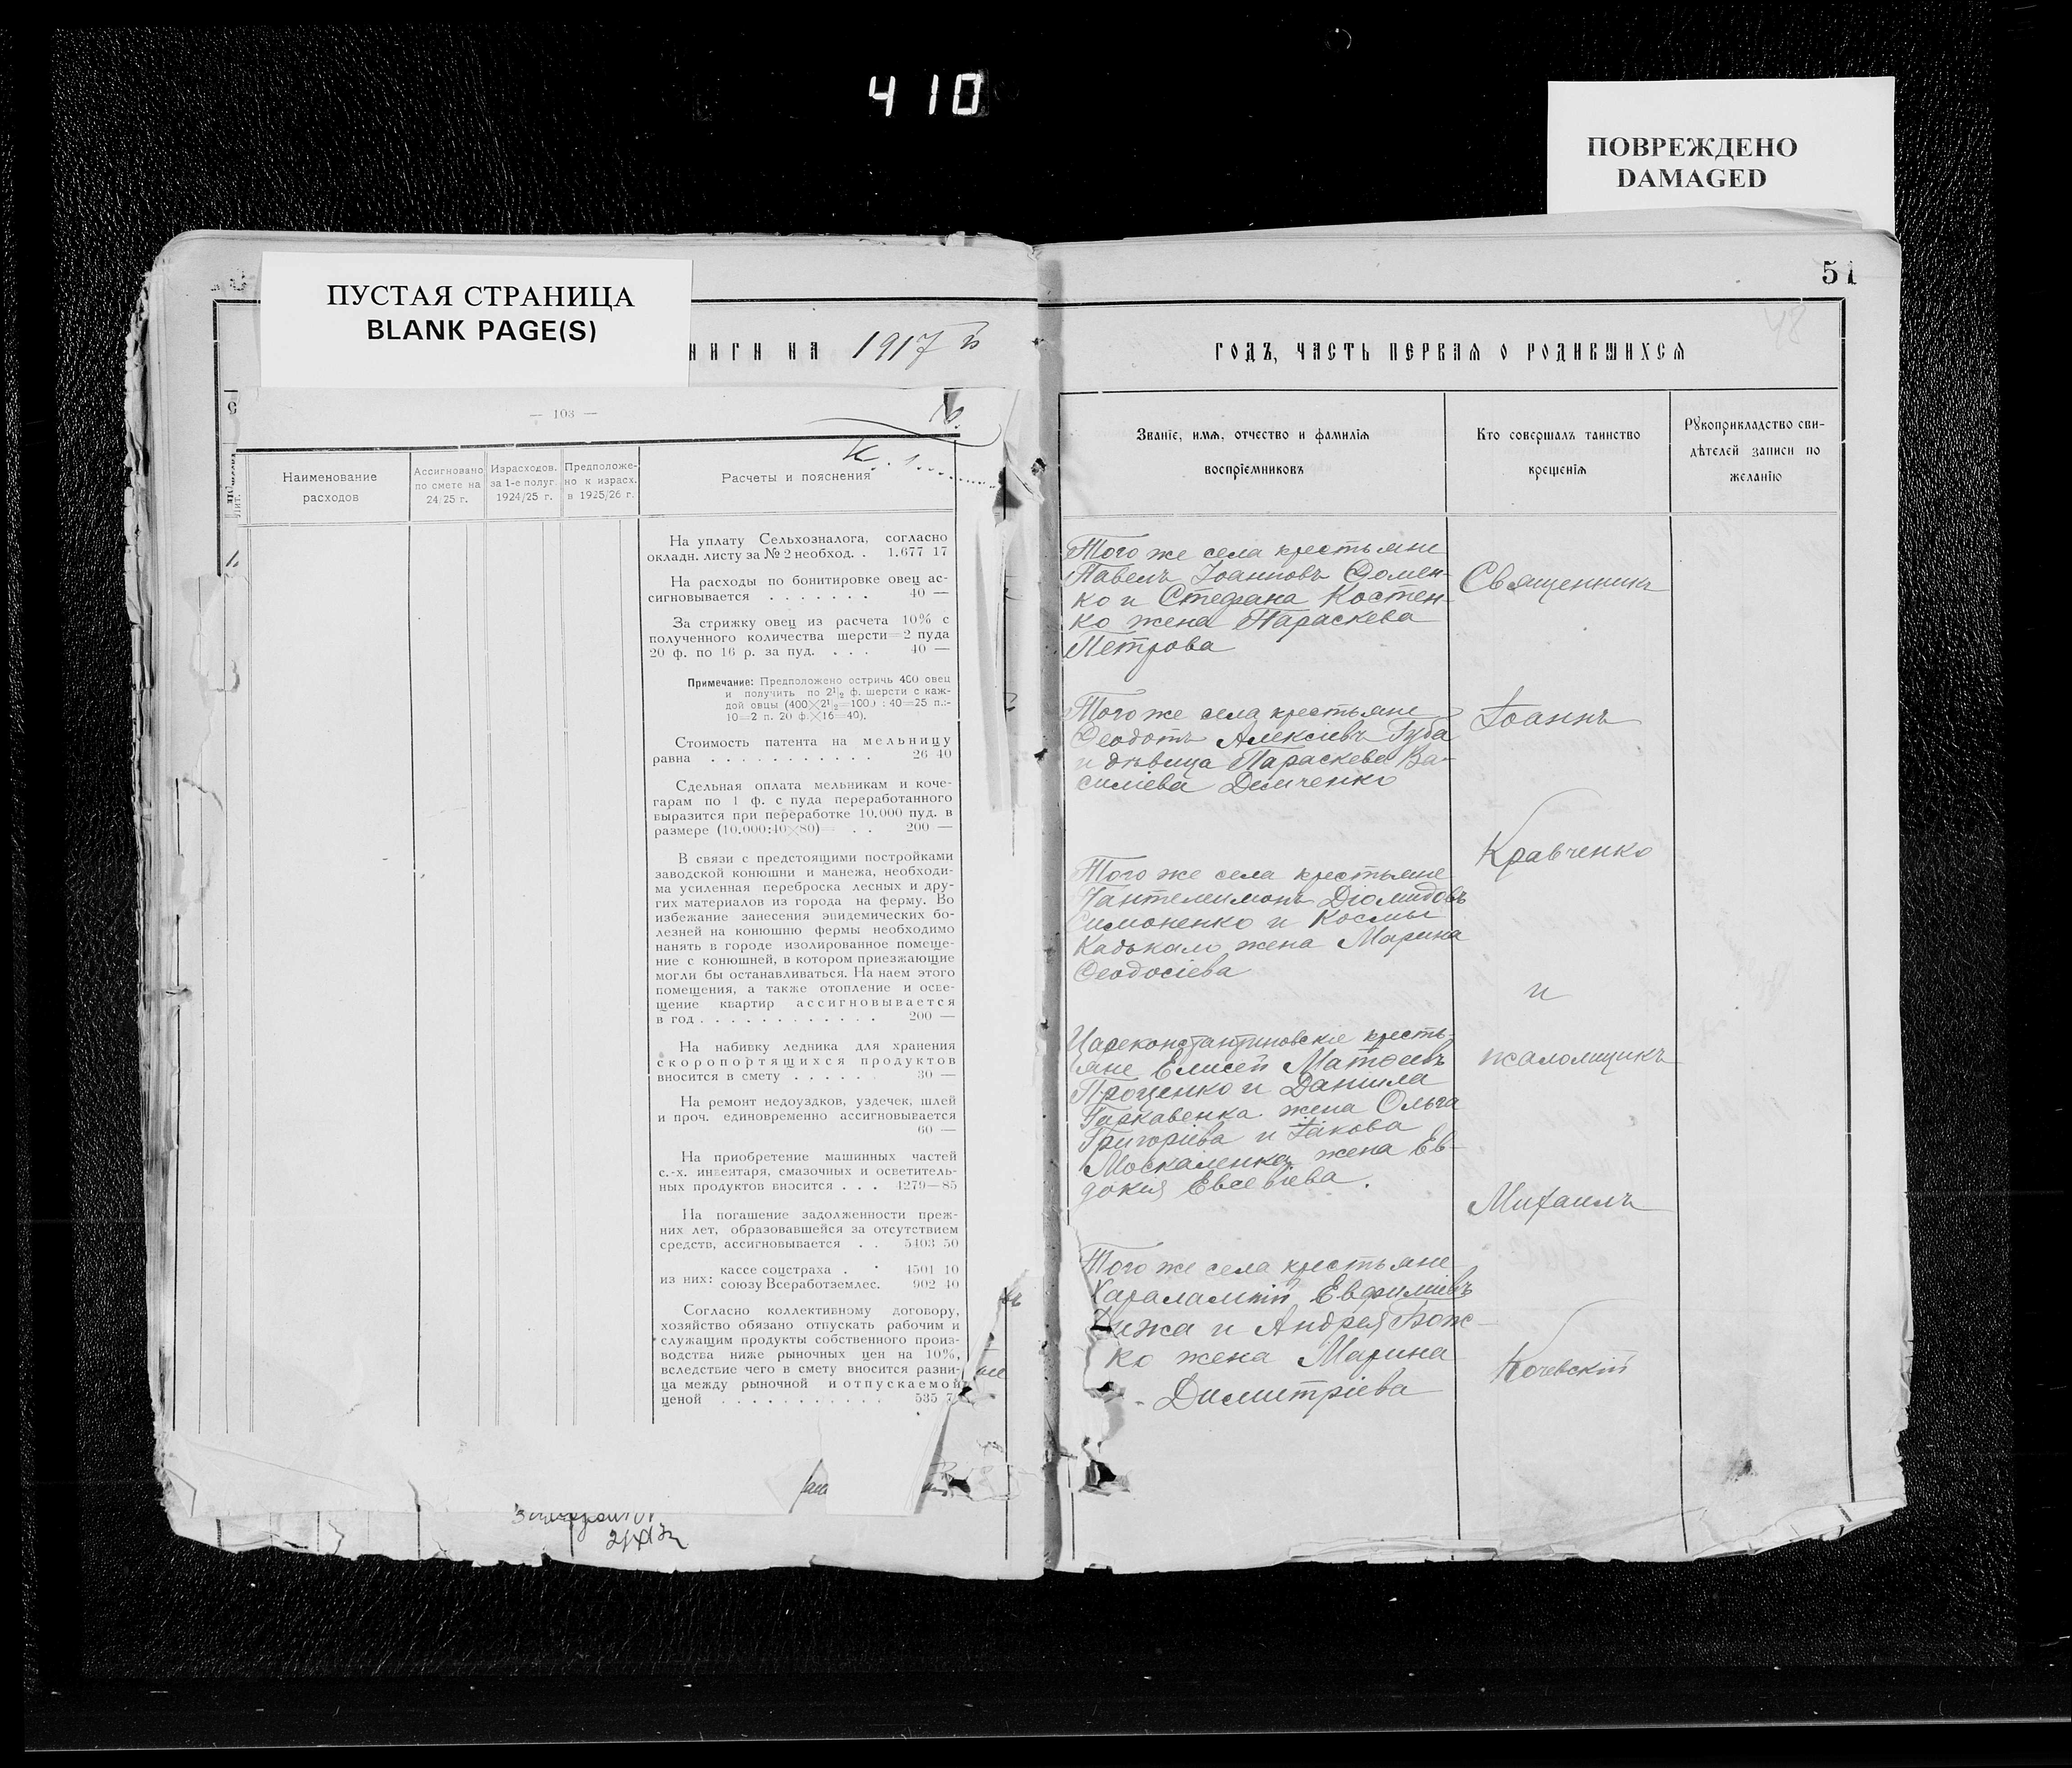 410
ПОВРЕЖДЕНО
DAMAGED
ПУСТАЯ СТРАНИЦА
BLANK PAGE(S)
НИГИ НА 1917 й
— 103 —
Наименование
расходов
Ассигновано
по смете на
24/25 г.
Израсходов.
за 1-е полуг.
1924/25 г.
Предположе-
но к израсх.
в 1925/26 г.
Расчеты и пояснения
На уплату Сельхозналога, согласно
окладн. листу за № 2 необход. . 1.677 17
На расходы по бонитировке овец ас-
сигновывается . . . . . . . 40 —
За стрижку овец из расчета 10% с
полученного количества шерсти=2 пуда
20 ф. по 16 р. за пуд. . . . 40 —
Примечание: Предположено остричь 400 овец
и получить по 2½ ф. шерсти с каж-
дой овцы (400×2½=1000 : 40=25 п.:-
10=2 п. 20 ф.×16=40).
Стоимость патента на мельницу
равна . . . . . . . . . . . 26 40
Сдельная оплата мельникам и коче-
гарам по 1 ф. с пуда переработанного
выразится при переработке 10.000 пуд. в
размере (10.000:40×80)= . . 200 —
В связи с предстоящими постройками
заводской конюшни и манежа, необходи-
ма усиленная переброска лесных и дру-
гих материалов из города на ферму. Во
избежание занесения эпидемических бо-
лезней на конюшню фермы необходимо
нанять в городе изолированное помеще-
ние с конюшней, в котором приезжающие
могли бы останавливаться. На наем этого
помещения, а также отопление и осве-
щение квартир ассигновывается
в год . . . . . . . . . . . . 200 —
На набивку ледника для хранения
скоропортящихся продуктов
вносится в смету . . . . . . 30 —
На ремонт недоуздков, уздечек, шлей
и проч. единовременно ассигновывается
60 —
На приобретение машинных частей
с.-х. инвентаря, смазочных и осветитель-
ных продуктов вносится . . . 4279—85
На погашение задолженности преж-
них лет, образовавшейся за отсутствием
средств, ассигновывается . . 5403 50
из них: кассе соцстраха . . 4501 10
союзу Всеработземлес. 902 40
Согласно коллективному договору,
хозяйство обязано отпускать рабочим и
служащим продукты собственного произ-
водства ниже рыночных цен на 10%,
вследствие чего в смету вносится разни-
ца между рыночной и отпускаемой
ценой . . . . . . . . . . . 535
51
48
ГОДЪ, ЧАСТЬ ПЕРВАЯ О РОДИВШИХСЯ
Званіе, имя, отчество и фамилія
воспріемниковъ
Кто совершалъ таинство
крещенія
Рукоприкладство сви-
дѣтелей записи по
желанію
Того же села крестьяне
Павелъ Іоанновъ Фомен-
ко и Стефана Костен-
ко жена Параскева
Петрова
Того же села крестьяне
Ѳеодотъ Алексіевъ Губа
и дѣвица Параскева Ва-
силіева Демченко
Того же села крестьяне
Пантелеимонъ Діомидовъ
Симоненко и Космы
Кадькало жена Марина
Ѳеодосіева
Цареконстантиновскіе кресть-
яне Елисей Матѳеевъ
Проценко и Даниила
Гаркавенка жена Ольга
Григоріева и Іакова
Москаленка жена Ев-
докія Евсевіева.
Того же села крестьяне
Харалампій Евфиміевъ
Дижа и Андрея Бож-
ко жена Марина
Димитріева
Священникъ
Іоаннъ
Кравченко
и
псаломщикъ
Михаилъ
Кочевскій